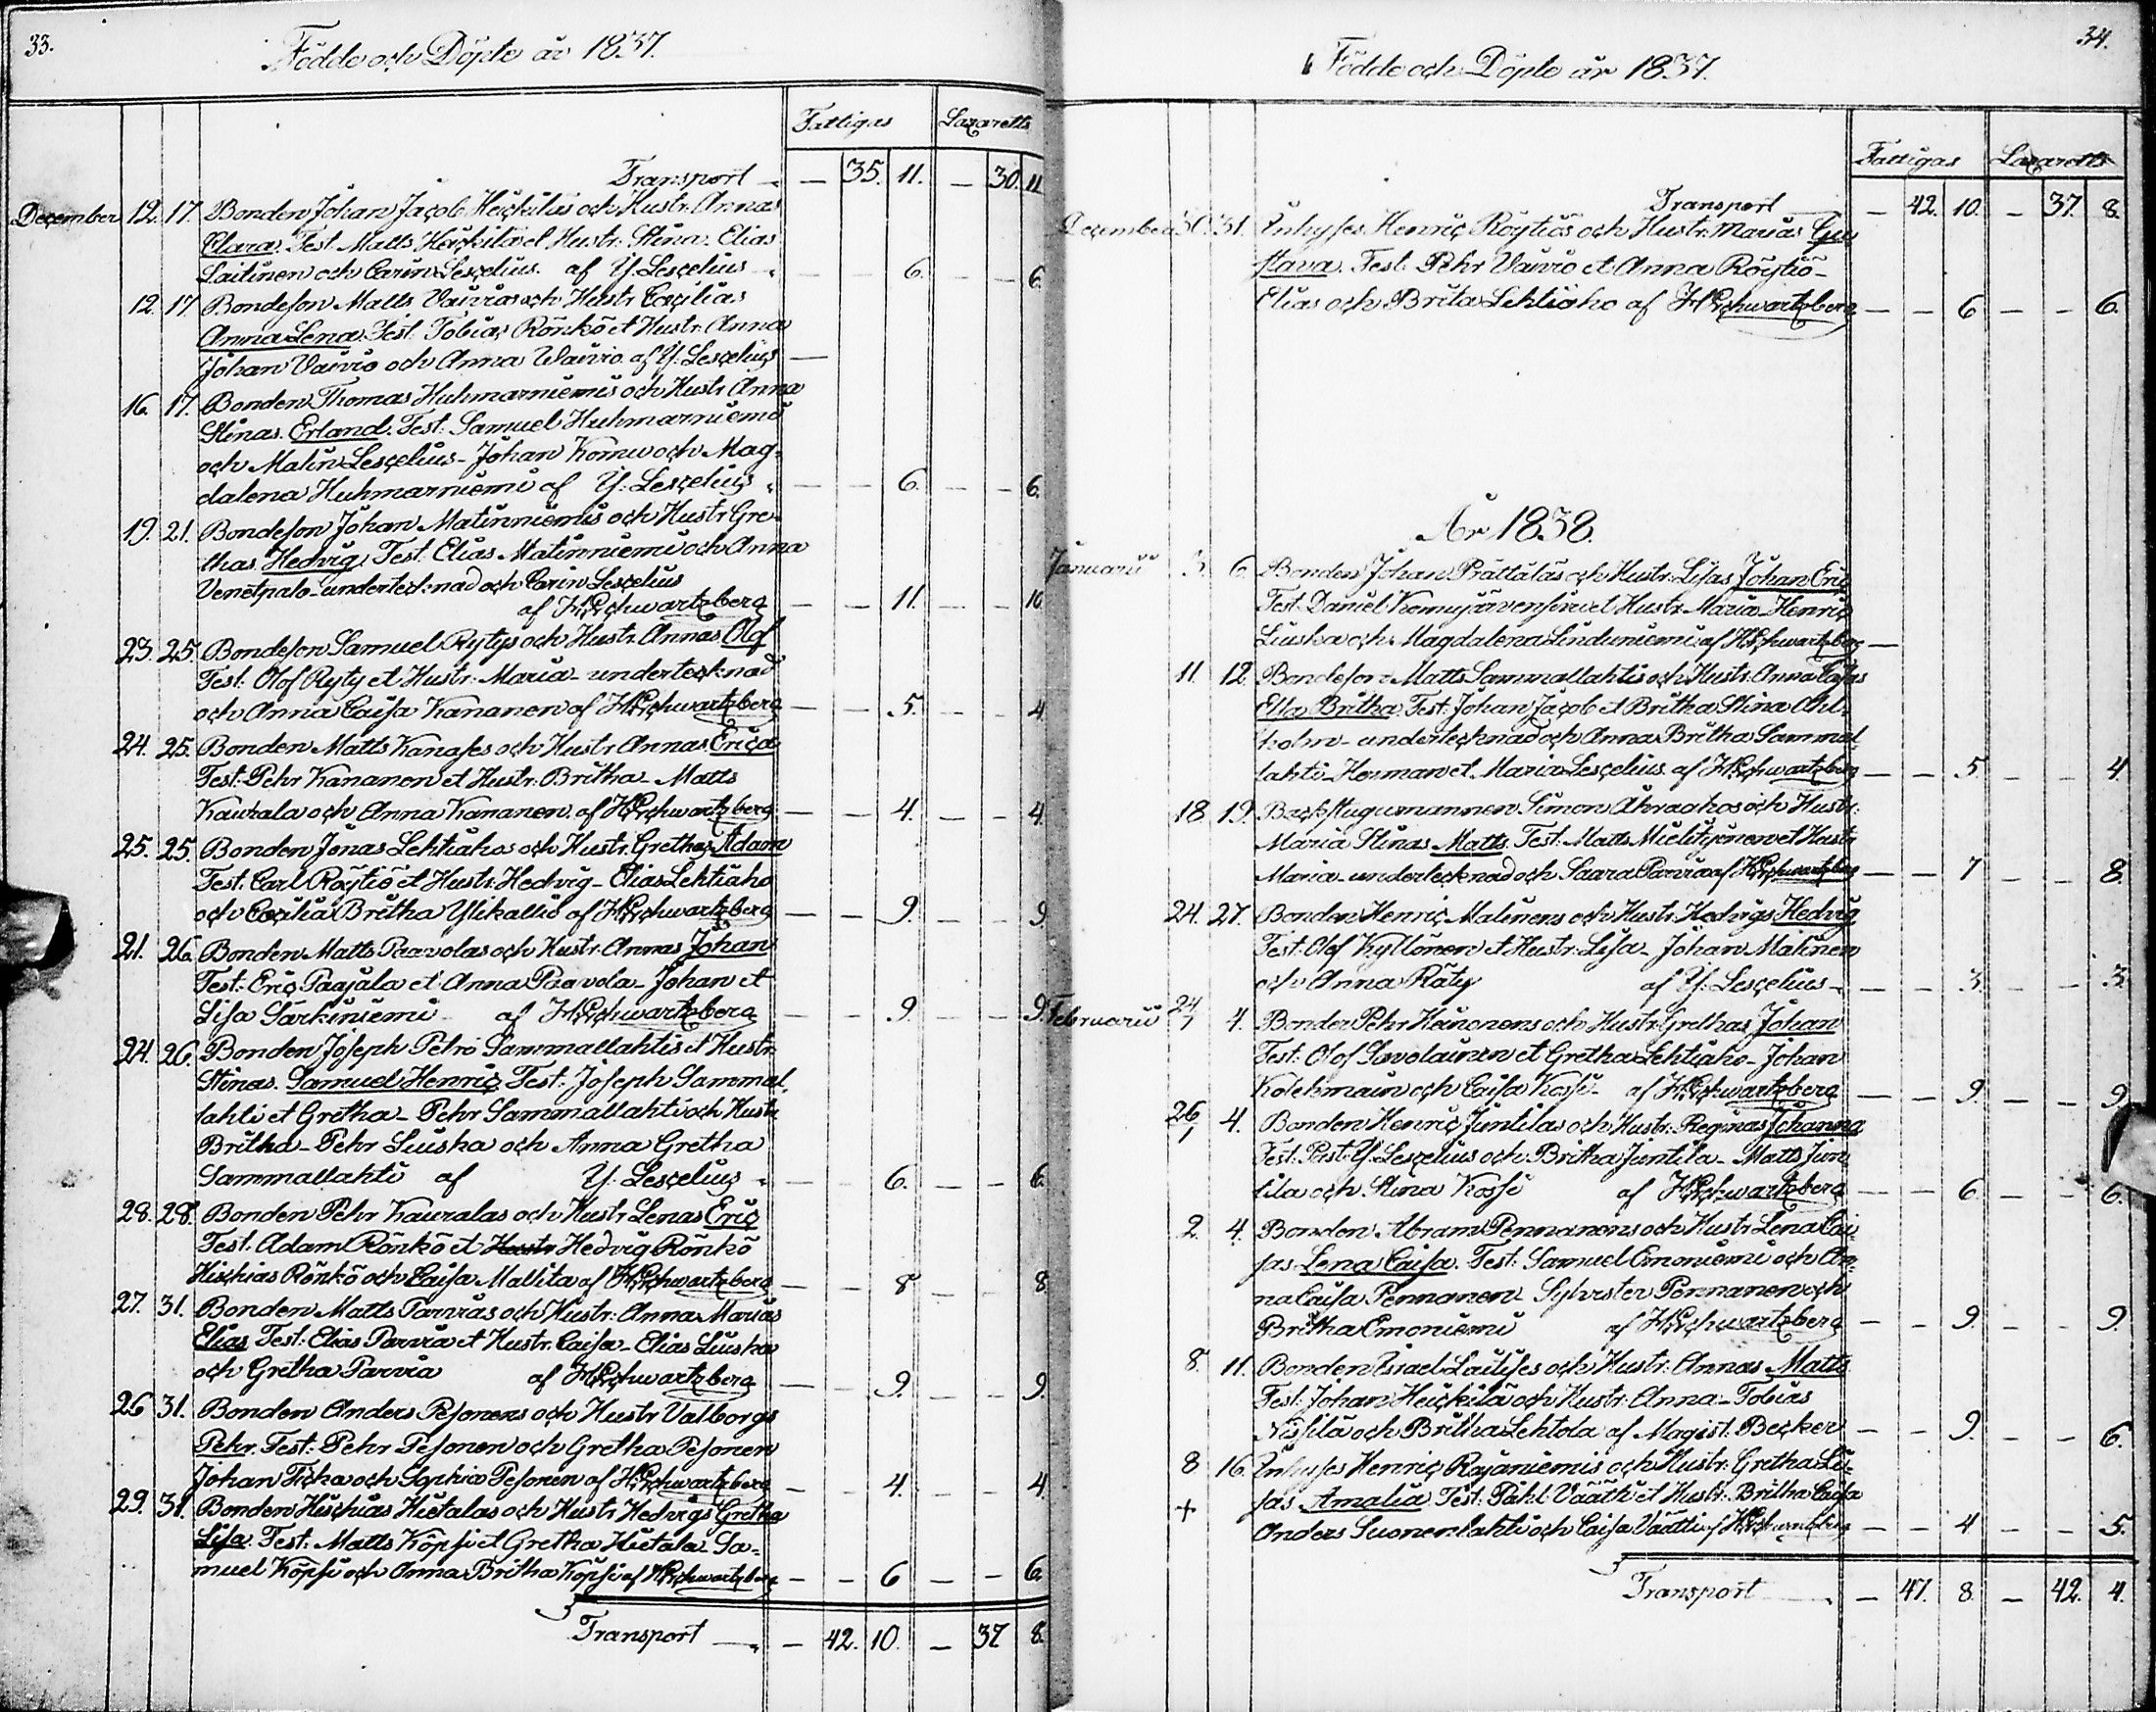 33.
Födde och Döpte år 1837.
Fattigas Lazaretts
Transport — 35. 11. — 30. 11
December 12. 17. Bonden Johan Jacob Heickiläs och Hustr. Annas
Clara. Test. Matts Heickilä et Hustr: Stina. Elias
Laitinen och Carin Lescelius. af Y. Lescelius — — 6. — — 6.
12. 17. Bondeson Matts Vaivios och Hustr Cæcilias
Anna Lena. Test. Tobias Rönkö et Hustr. Anna
Johan Vaivio och Anna Waivio af Y: Lescelius —
16. 17. Bonden Thomas Huhmarniemis och Hustr Anna
Stinas. Erland. Test: Samuel Huhmarniemi
och Malin Lescelius - Johan Komu och Mag-
dalena Huhmarniemi af Y: Lescelius — — 6. — — 6.
19. 21. Bondeson Johan Matinniemis och Hustr Gre-
thas Hedvig. Test. Elias Matinniemi och Anna
Venetpalo - undertecknad och Carin Lescelius
af HSchwartzberg — — 11. — — 10
23. 25. Bondeson Samuel Rytys och Hustr. Annas Olof
Test: Olof Ryty et Hustr: Maria - undertecknad
och Anna Caisa Kananen af HSchwartzberg — — 5. — — 4
24. 25. Bonden Matts Kanases och Hustr Annas Erica
Test: Pehr Kananen et Hustr: Britha - Matts
Kaurala och Anna Kananen. af HSchwartzberg — — 4. — — 4.
25. 25. Bonden Jonas Lehtiahos och Hustr. Grethas Adam
Test. Carl Röytiö et Hustr. Hedvig - Elias Lehtiaho
och Cæcilia Britha Ylikallio af HSchwartzberg — — 9. — — 9.
21. 26. Bonden Matts Paavolas och Hustr. Annas Johan
Test: Eric Paajala et Anna Paavola - Johan et
Lisa Särkiniemi af HSchwartzberg — — 9. — — 9.
24. 26. Bonden Joseph Petri Sammallahtis et Hustr
Stinas. Samuel Henric Test: Joseph Sammal-
lahti et Gretha - Pehr Sammallahti och Hustr
Britha - Pehr Liuska och Anna Gretha
Sammallahti af Y: Lescelius — — 6. — — 6.
28. 28. Bonden Pehr Kauralas och Hustr Lenas Eric
Test. Adam Rönkö et Hustr Hedvig Rönkö
Hischias Rönkö och Caisa Mallita af HSchwartzberg — — 8 — — 8
27. 31. Bonden Matts Parvias och Hustr: Anna Marias
Elias Test: Elias Parvia et Hustr. Caisa - Elias Liuska
och Gretha Parvia af HSchwartzberg — — 9. — — 9.
26 31. Bonden Anders Pesonens och Hustr Valborgs
Pehr. Test: Pehr Pesonen och Gretha Pesonen
Johan Ticka och Sophia Pesonen af HSchwartzberg — — 4. — — 4
29. 31. Bonden Hischias Hietalas och Hustr Hedvigs Gretha
Lisa. Test: Matts Köpsi et Gretha Hietala Sa-
muel Köpsi och Anna Britha Köpsi af HSchwartzberg — — 6 — — 6.
Transport — 42. 10. — 37 8.
34.
Födde och Döpte år 1837.
Fattigas Lazaretts
Transport — 42. 10. — 37. 8.
December 30. 31. Inhyses Henric Röytiös och Hustr: Marias Gu
stava. Test: Pehr Vaivio et Anna Röytiö -
Elias och Brita Lehtiaho af HSchwartzberg — — 6 — — 6.
År 1838.
Januarii 3. 6. Bonden Johan Prättäläs och Hustr. Lisas Johan Eric
Test. Daniel Kemijärvensivu et Hustr. Maria - Henric
Liuska och Magdalena Linduniemi af HSchwartzberg —
11. 12. Bondeson Matts Sammallahtis och Hustr. Anna Cajsas
Ella Britha. Test: Johan Jacob et Britha Stina Ahl-
holm - undertecknad och Anna Britha Sammal-
lahti - Herman et Maria Lescelius af HSchwartzberg — — 5. — — 4
18. 19. Backstugumannen Simon Ahvaahos och Hustr:
Maria Stinas Matts. Test. Matts Mielityinen et Hustr
Maria - undertecknad och Saara Parvia af HSchwartzberg — — 7 — — 8.
24. 27. Bonden Henric Malinens och Hustr. Hedvigs Hedvig
Test: Olof Kyllönen et Hustr. Lisa - Johan Malinen
och Anna Räty af Y: Lescelius — — 3. — — 3.
Februarii 24/1 4. Bonden Pehr Heinonens och Hustr. Grethas Johan
Test: Olof Savolainen et Gretha Lehtiaho - Johan
Kolehmain och Caisa Kossi - af HSchwartzberg — — 9. — — 9
26/1 4. Bonden Henric Juntilas och Hustr. Reginas Johanna
Test. Past. Y: Lescelius och Britha Juntila - Matts Jun
tila och Stina Kossi af HSchwartzberg — — 6 — — 6.
2. 4. Bonden Abram Pennanens och Hustr Lena Cai-
sas Lena Caisa. Test: Samuel Emoniemi och An-
na Caisa Pennanen Sylvester Pennanen och
Britha Emoniemi af HSchwartzberg — — 9. — — 9.
8. 11. Bonden Israel Laitises och Hustr: Annas Matts
Test. Johan Heickilä och Hustr: Anna - Tobias
Nissilä och Britha Lehtola af Magist. Becker — — 9. — — 6.
8 16. Inhyses Henric Rajaniemis och Hustr. Gretha Li-
+ sas Amalia Test: Påhl Väätti et Hustr: Britha Caisa
Anders Suonenlahti och Caisa Väätti af HSchwartzberg — — 4 — — 5.
Transport — 47. 8. — 42. 4.